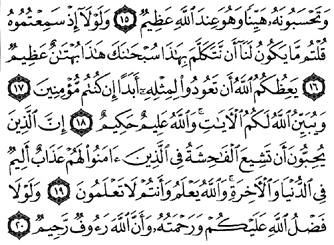 وَتَحْسَبُونَهُۥ هَيِّنًا وَهُوَ عِندَ ٱللَّهِ عَظِيمٌ ١٥ وَلَوْلَآ إِذْ سَمِعْتُمُوهُ
قُلْتُم مَّا يَكُونُ لَنَآ أَن نَّتَكَلَّمَ بِهَٰذَا سُبْحَٰنَكَ هَٰذَا بُهْتَٰنٌ عَظِيمٌ
١٦ يَعِظُكُمُ ٱللَّهُ أَن تَعُودُوا۟ لِمِثْلِهِۦٓ أَبَدًا إِن كُنتُم مُّؤْمِنِينَ ١٧
وَيُبَيِّنُ ٱللَّهُ لَكُمُ ٱلْءَايَٰتِ ۚ وَٱللَّهُ عَلِيمٌ حَكِيمٌ ١٨ إِنَّ ٱلَّذِينَ
يُحِبُّونَ أَن تَشِيعَ ٱلْفَٰحِشَةُ فِى ٱلَّذِينَ ءَامَنُوا۟ لَهُمْ عَذَابٌ أَلِيمٌ
فِى ٱلدُّنْيَا وَٱلْءَاخِرَةِ ۚ وَٱللَّهُ يَعْلَمُ وَأَنتُمْ لَا تَعْلَمُونَ ١٩ وَلَوْلَا
فَضْلُ ٱللَّهِ عَلَيْكُمْ وَرَحْمَتُهُۥ وَأَنَّ ٱللَّهَ رَءُوفٌ رَّحِيمٌ ٢٠